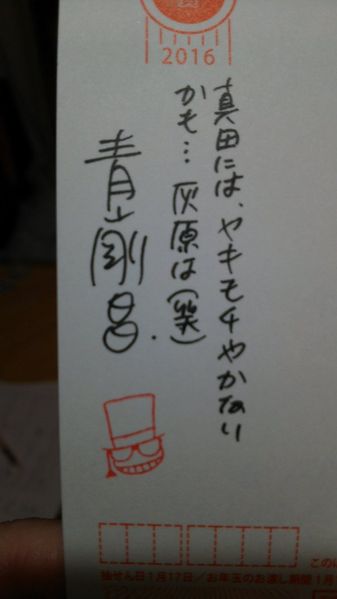 2016
真田には、ヤキモチやかない
かも…灰原は(笑)
青山剛昌.
抽せん日1月17日／お年玉のお渡し期間1月